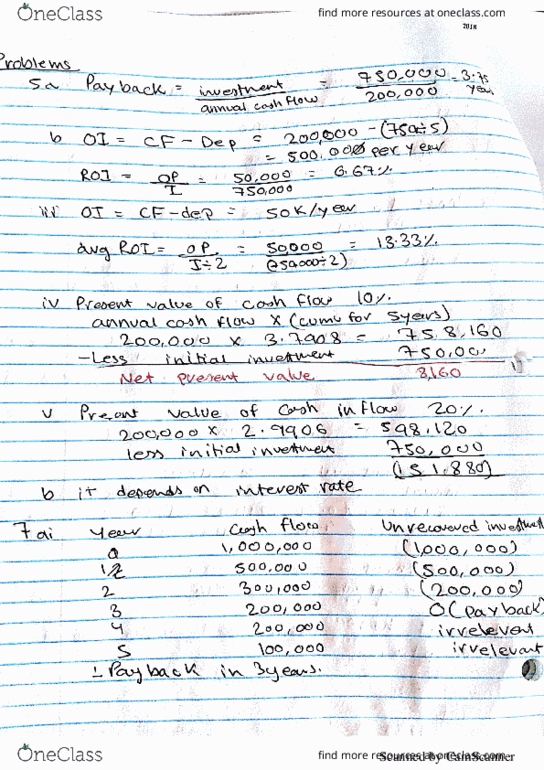 OneClass
find more resources at oneclass.com
2018
Problems
5.a Payback = investment / annual cash flow = 750,000 / 200,000 = 3.75 years
b OI = CF - Dep = 200,000 - (750÷5)
= 500.000 per year
ROI = OP / I = 50,000 / 750,000 = 6.67%
iii OI = CF-dep = 50K/year
avg ROI = OP / I÷2 = 50,000 / (750000÷2) = 13.33%
iv Present value of cash flow 10%.
annual cash flow x (cumu for 5years)
200,000 x 3.7908 = 758,160
-Less initial investment 750,000
Net present value 8,160
v Present value of Cash in flow 20%.
200,000 x 2.9906 = 598,120
less initial investment 750,000
(151,880)
b it depends on interest rate
7ai Year Cash flow Unrecovered investment
0 1,000,000 (1,000,000)
1 500,000 (500,000)
2 300,000 (200,000)
3 200,000 0(payback)
4 200,000 irrelevent
5 100,000 irrelevant
Payback in 3years.
OneClass
find more resources at oneclass.com
Scanned by CamScanner